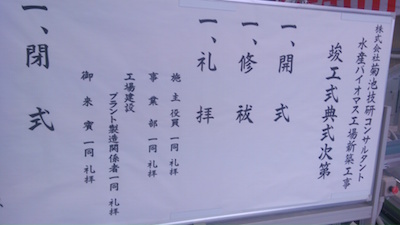 株式会社菊池技研コンサルタント
水産バイオマス工場新築工事
竣工式典式次第
一、開式
一、修祓
一、礼拝
施主役員一同 礼拝
事業部一同 礼拝
工場建設
プラント製造関係者一同 礼拝
御来賓一同 礼拝
一、閉式